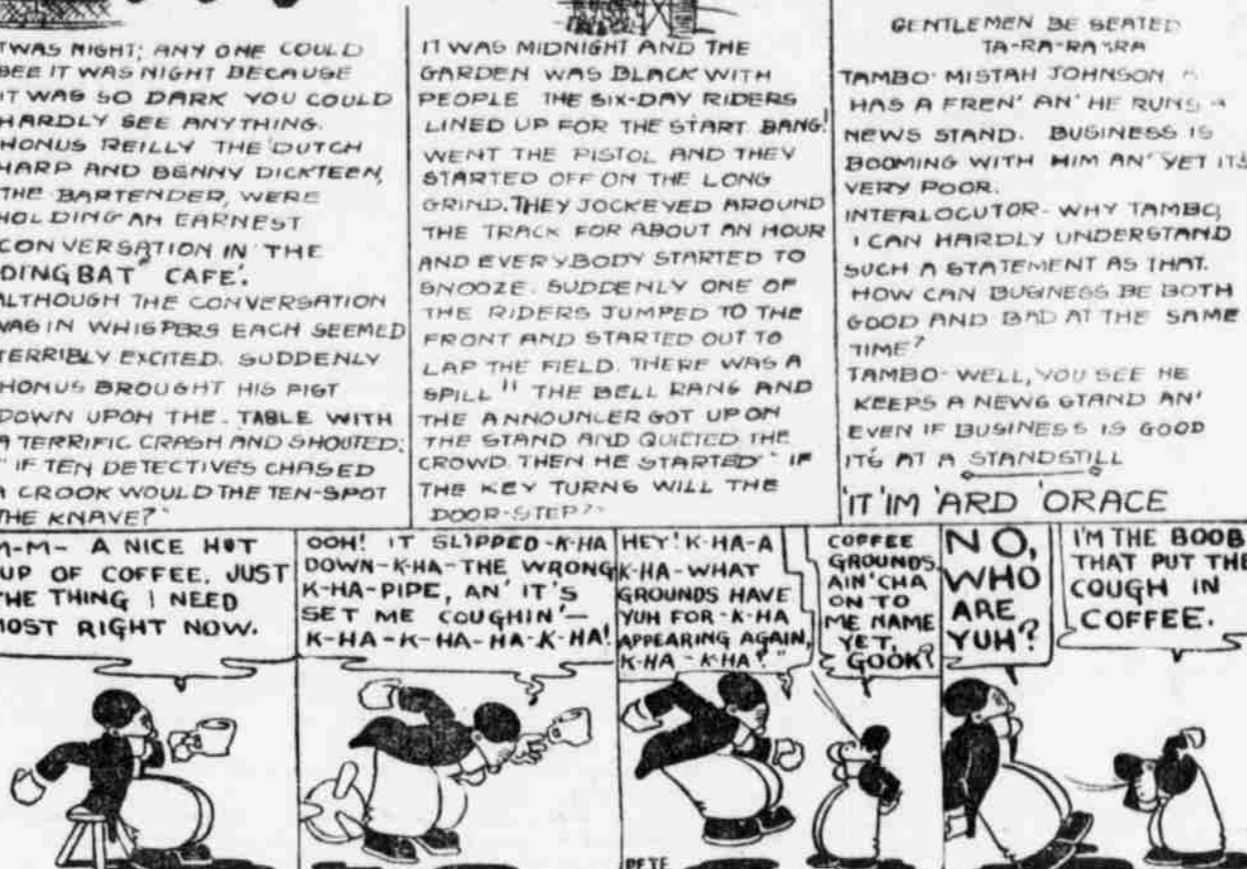 TWAS NIGHT; ANY ONE COULD
SEE IT WAS NIGHT BECAUSE
IT WAS SO DARK YOU COULD
HARDLY SEE ANYTHING.
HONUS REILLY THE DUTCH
HARP AND BENNY DICKTEEN,
THE BARTENDER, WERE
HOLDING AN EARNEST
CONVERSATION IN THE
DINGBAT" CAFE'.
ALTHOUGH THE CONVERSATION
WAS IN WHISPERS EACH SEEMED
TERRIBLY EXCITED. SUDDENLY
HONUS BROUGHT HIS FIST
DOWN UPON THE TABLE WITH
A TERRIFIC CRASH AND SHOUTED:
"IF TEN DETECTIVES CHASED
A CROOK WOULD THE TEN-SPOT
THE KNAVE?"
IT WAS MIDNIGHT AND THE
GARDEN WAS BLACK WITH
PEOPLE THE SIX-DAY RIDERS
LINED UP FOR THE START. BANG!
WENT THE PISTOL AND THEY
STARTED OFF ON THE LONG
GRIND. THEY JOCKEYED AROUND
THE TRACK FOR ABOUT AN HOUR
AND EVERYBODY STARTED TO
SNOOZE. SUDDENLY ONE OF
THE RIDERS JUMPED TO THE
FRONT AND STARTED OUT TO
LAP THE FIELD. THERE WAS A
SPILL!! THE BELL RANG AND
THE ANNOUNCER GOT UP ON
THE STAND AND QUIETED THE
CROWD. THEN HE STARTED "IF
THE KEY TURNS WILL THE
DOOR-STEP?"
GENTLEMEN BE SEATED
TA-RA-RA-RA
TAMBO- MISTAH JOHNSON
HAS A FREN' AN' HE RUNS A
NEWS STAND. BUSINESS IS
BOOMING WITH HIM AN' YET ITS
VERY POOR.
INTERLOCUTOR- WHY TAMBO,
I CAN HARDLY UNDERSTAND
SUCH A STATEMENT AS THAT.
HOW CAN BUSINESS BE BOTH
GOOD AND BAD AT THE SAME
TIME?
TAMBO- WELL, YOU SEE HE
KEEPS A NEWS STAND AN'
EVEN IF BUSINESS IS GOOD
IT'S AT A STANDSTILL
'IT 'IM 'ARD 'ORACE
M-M- A NICE HOT
CUP OF COFFEE. JUST
THE THING I NEED
MOST RIGHT NOW.
OOH! IT SLIPPED -K-HA
DOWN-K-HA-THE WRONG
K-HA-PIPE, AN' IT'S
SET ME COUGHIN'-
K-HA-K-HA-HA-K-HA!
HEY! K-HA-A
K-HA-WHAT
GROUNDS HAVE
YUH FOR -K-HA
APPEARING AGAIN,
K-HA-K-HA?"
COFFEE
GROUNDS.
AIN'CHA
ON TO
ME NAME
YET,
GOOK?
NO,
WHO
ARE
YUH?
I'M THE BOOB
THAT PUT THE
COUGH IN
COFFEE.
PETE